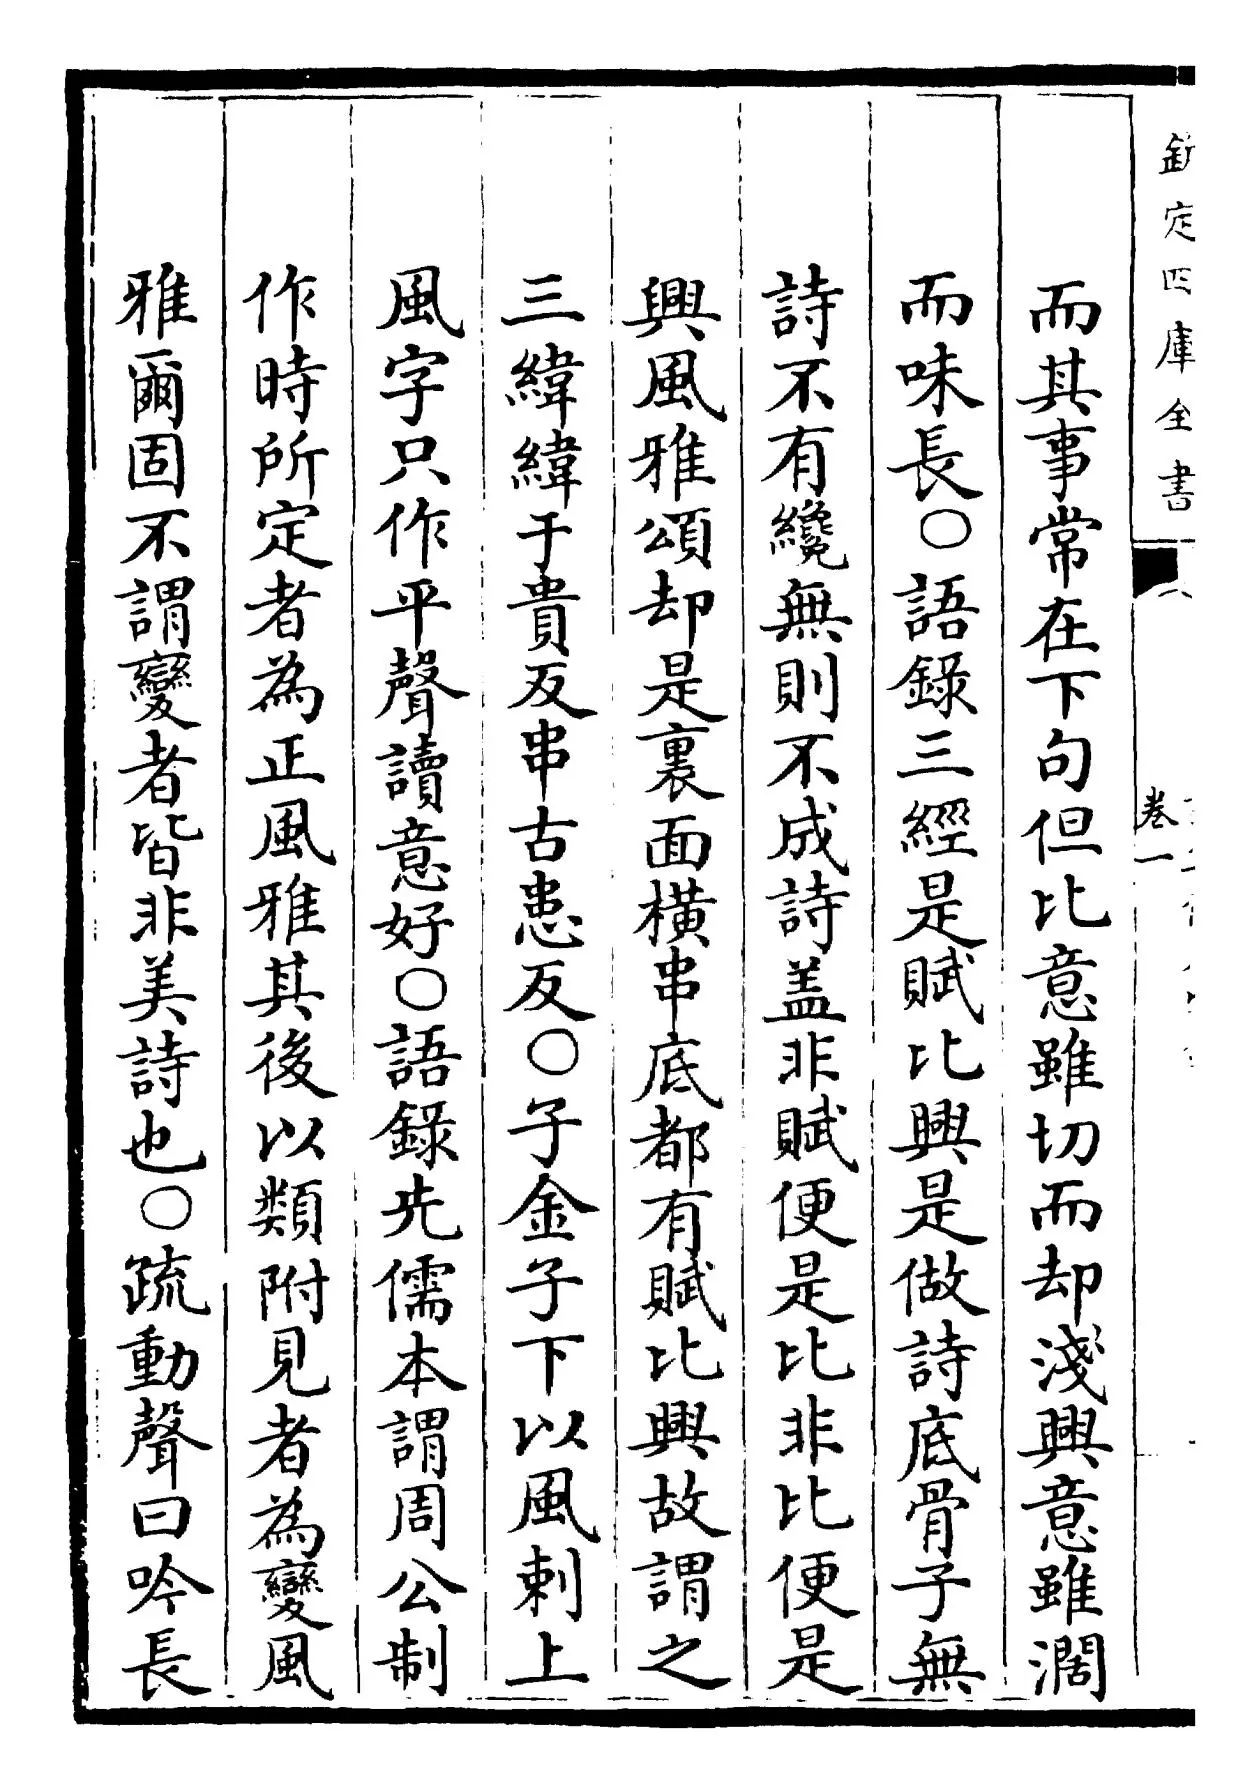 欽定四庫全書
卷一
而其事常在下句但比意雖切而却淺興意雖濶
而味長○語錄三經是賦比興是做詩底骨子無
詩不有纔無則不成詩盖非賦便是比非比便是
興風雅頌却是裏面橫串底都有賦比興故謂之
三緯緯于貴反串古患反○子金子下以風刺上
風字只作平聲讀意好○語錄先儒本謂周公制
作時所定者為正風雅其後以類附見者為變風
雅爾固不謂變者皆非美詩也○疏動聲曰吟長